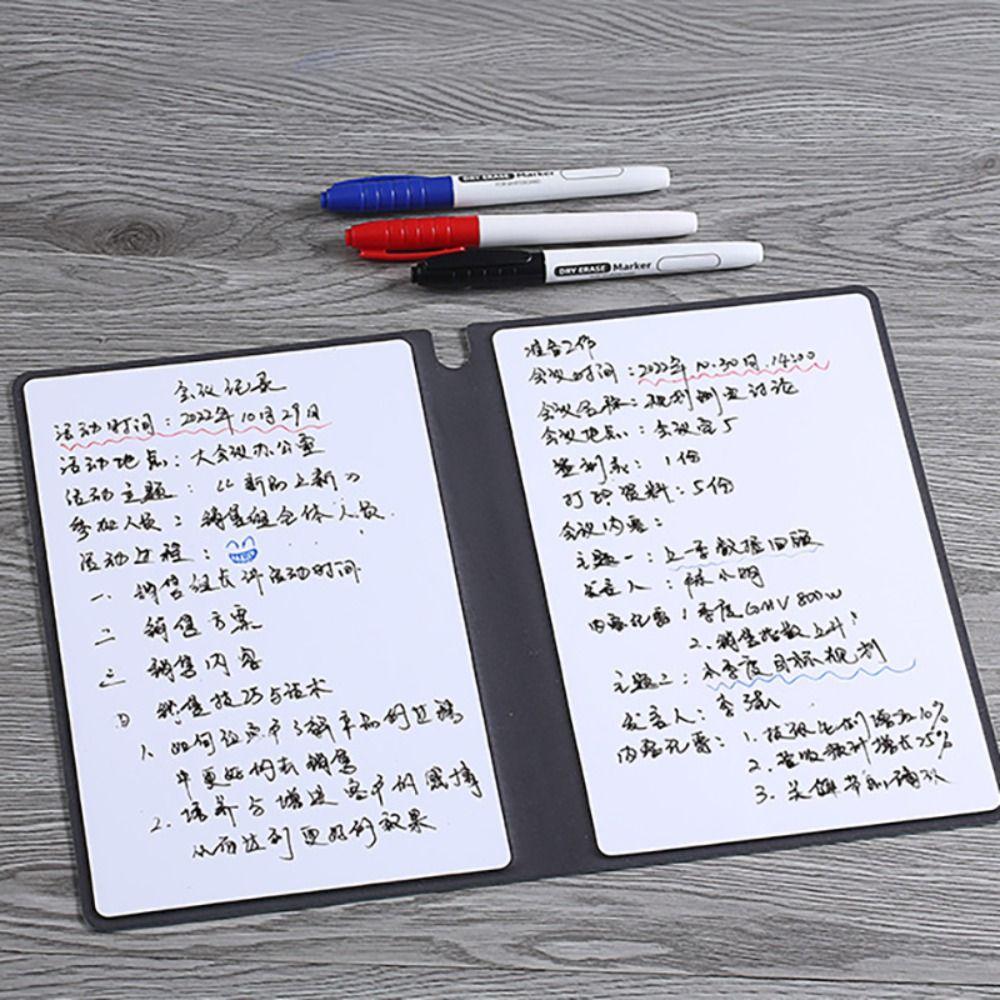 DRY ERASE Marker
DRY ERASE Marker
会议记录
活动时间：2022年10月29日
活动地点：大会议办公室
活动主题：《新品上新》
参加人员：销售组全体人员.
活动过程：
一. 销售组长讲活动时间
二 销售方案
三 销售内容
四 销售技巧与话术
1. 如何让客户了解产品的过程
中更好的去销售
2. 培养与增进客户的感情
从而达到更好的效果
准备工作
会议时间：2022年10.30日.14:00
会议名称：规划制定讨论
会议地点：会议室5
签到表：1份
打印资料：5份
会议内容：
主题一：上一季数据回顾
发言人：陈小明
内容记要：1.季度GMV 800w
2.销售指数上升
主题二：本季度目标规划
发言人：李强
内容记要：1.投放比例增加10%
2.营收预计增长25%
3.关键节点确认